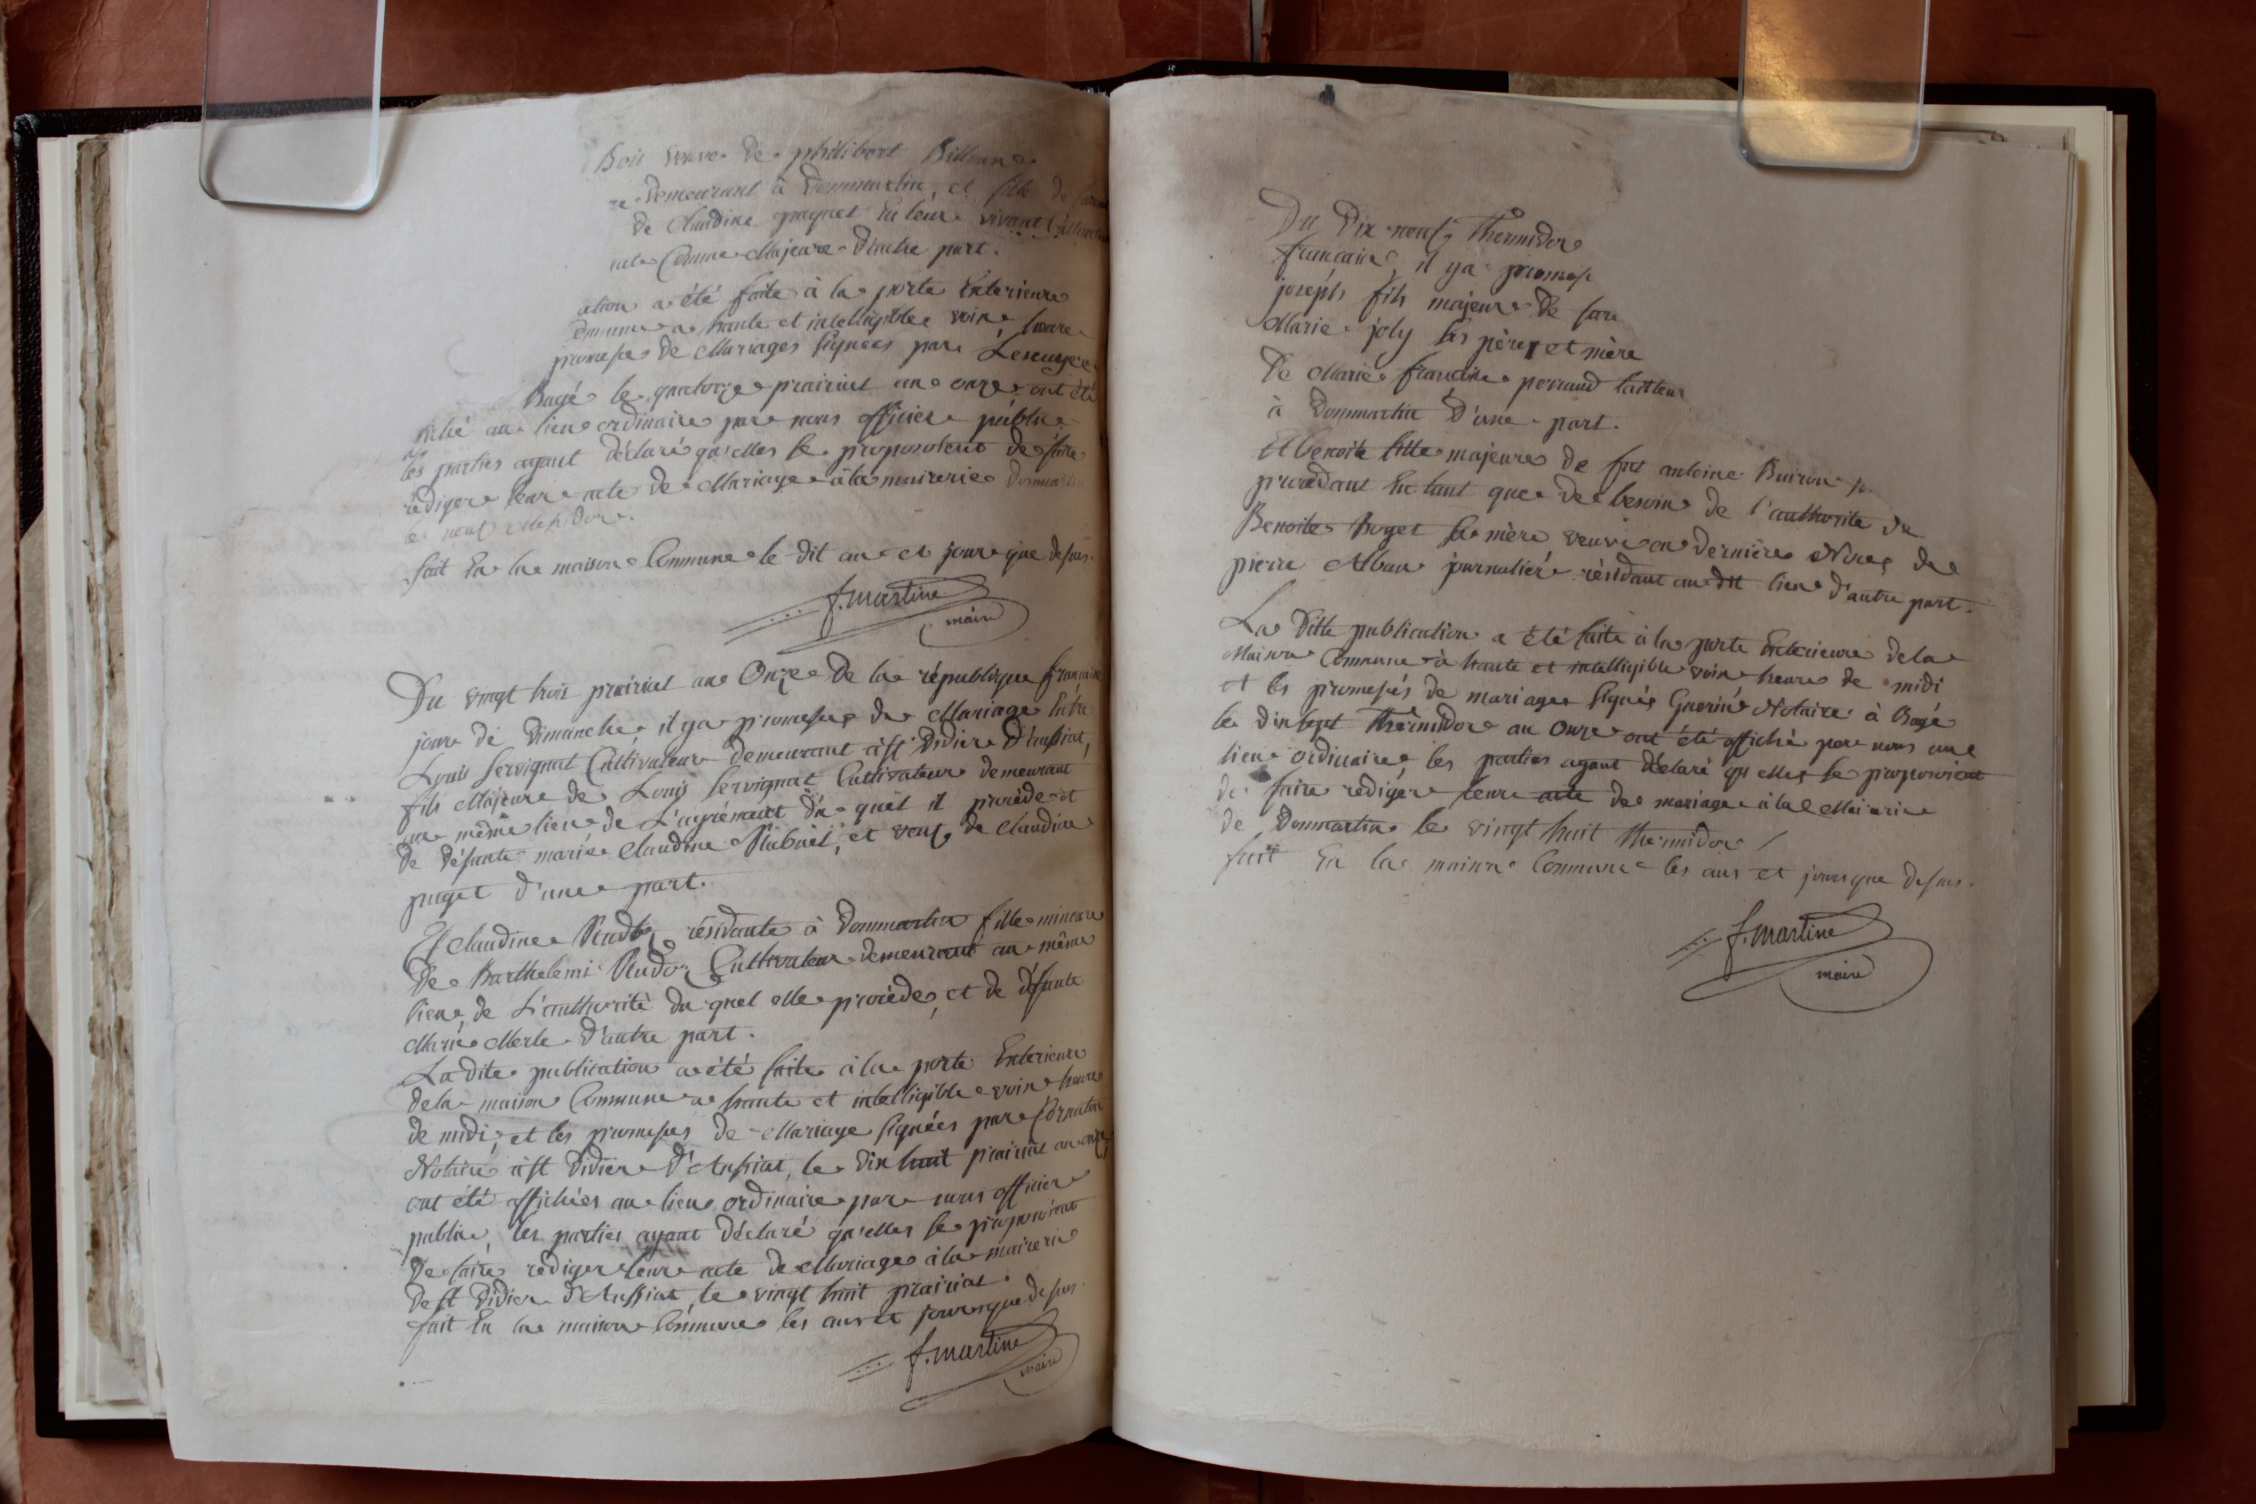 Bois veuve de philibert Billoud
re demeurant à Dommartin, et fille de
de Claudine goyet en leur vivant
comme Majeure d'autre part.
ation a été faite à la porte Exterieure
ommune a haute et intelligible voix, heure
promesses de Mariages signées par
Bagé le quatorze prairial an onze ont été
fiché au lieu ordinaire par nous officier public
les parties ayant déclaré qu'elles se proposoient de faire
rédiger leur acte de Mariage à la mairerie Dommartin
le neuf messidor.
fait En la maison Commune le dit an et jour que dessus.
f. martine
maire
Du vingt trois prairial an Onze de la république francaise
jour de Dimanche il ya promesses de Mariage Entre
Louis Servignat Cultivateur demeurant à st Didier D'aussiat,
fils Majeur de Louis Servignat Cultivateur demeurant
au même lieu de L'agrément du quel il procéde et
de défunte marie Claudine et veuf de Claudine
puget d'une part.
Et claudine résidante à Dommartin fille mineure
De Barthelemi Cultivateur demeurant au même
lieu, de L'authorité du quel elle procéde, et de défunte
Marie Merle d'autre part.
La dite publication a été faite à la porte Exterieure
dela maison Commune a haute et intelligible voix heure
de midi, et les promesses de Mariage signées par
Notaire à st Didier D'Aussiat, le dix huit prairial an onze,
ont été affichées au lieu ordinaire par nous officier
public, les parties ayant déclaré qu'elles se proposoient
De faire rédiger leur acte de Mariage à la mairerie
De st Didier D'Aussiat, le vingt huit prairial.
fait En la maison Commune les ans et jours que dessus.
f. martine
maire
Du Dix neuf Thermidor
francaise, il ya promess
joseph fils majeur de feu
Marie joly ses père et mère
De Marie francoise perraud
à Dommartin D'une part.
Et benoite fille majeure de feu antoine Buiron
procédant En tant que de besoin de l'authorité de
Benoite Buget sa mère veuve en dernière Noces de
pierre Alban journalier résidant au dit lieu d'autre part.
La ditte publication a été faite à la porte Exterieure dela
Maison Commune à haute et intelligible voix heure de midi
et les promesses de mariage signés Guerin Notaire à Bagé
le dix sept Thermidor an Onze ont été affiché par nous au
lieu ordinaire, les parties ayant déclaré qu'elles se proposoient
de faire rédiger leur acte de mariage à la Mairie
de Dommartin le vingt huit thermidor
fait En la maison Commune les ans et jours que dessus.
f. martine
maire